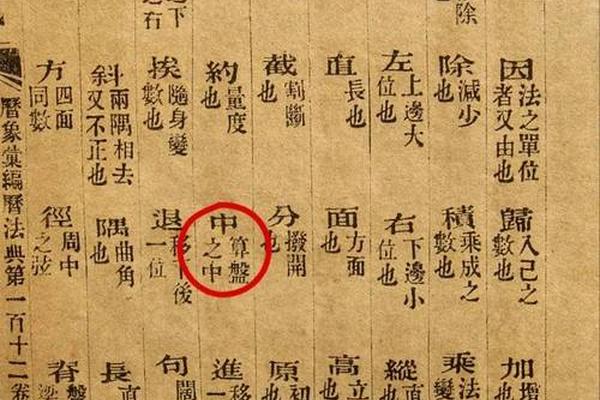 因法之單位者又由也歸入己之數也加增也
除
除減少也積乘成之數也乘法變
左上邊大位也右下邊小位也縱直也
直長也面方面也高立也
截割斷也分撥開也原初也
約量度也中算盤之中進移一
之下之右
挨隨身變數也退移下後一位句闊
斜兩隅相去又不正也隅曲角也長直
方四面同數徑周中之弦脊盤梁
曆象彙編曆法典第一百十二卷